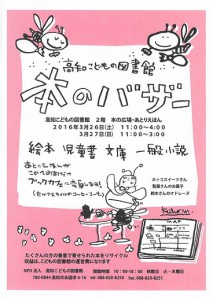 高知こどもの図書館
本のバザー
高知こどもの図書館 2階 本の広場・あとりえほん
2016年3月26日(土) 11:00~4:00
3月27日(日) 11:00~3:00
絵本 児童書 文庫 一般小説
ブックカフェに変身します!
(セルフスタイルのコーヒーコーナー)
ホッコスイーツさん
梨屋さんのお菓子
鈴木さんのマドレーヌ
たくさんの方の善意で寄せられた本をリサイクル
収益は、こどもの図書館の運営費になります
NPO法人 高知こどもの図書館 開館時間 10:00~18:00 休館日 火・木曜日